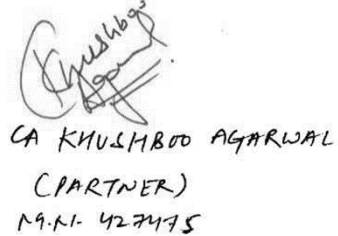 Khushboo
Agarwal
CA KHUSHBOO AGARWAL
(PARTNER)
M.N. 427475